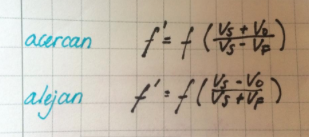 acercan f' = f ( (Vs + Vo) / (Vs - VF) )
alejan f' = f ( (Vs - Vo) / (Vs + VF) )